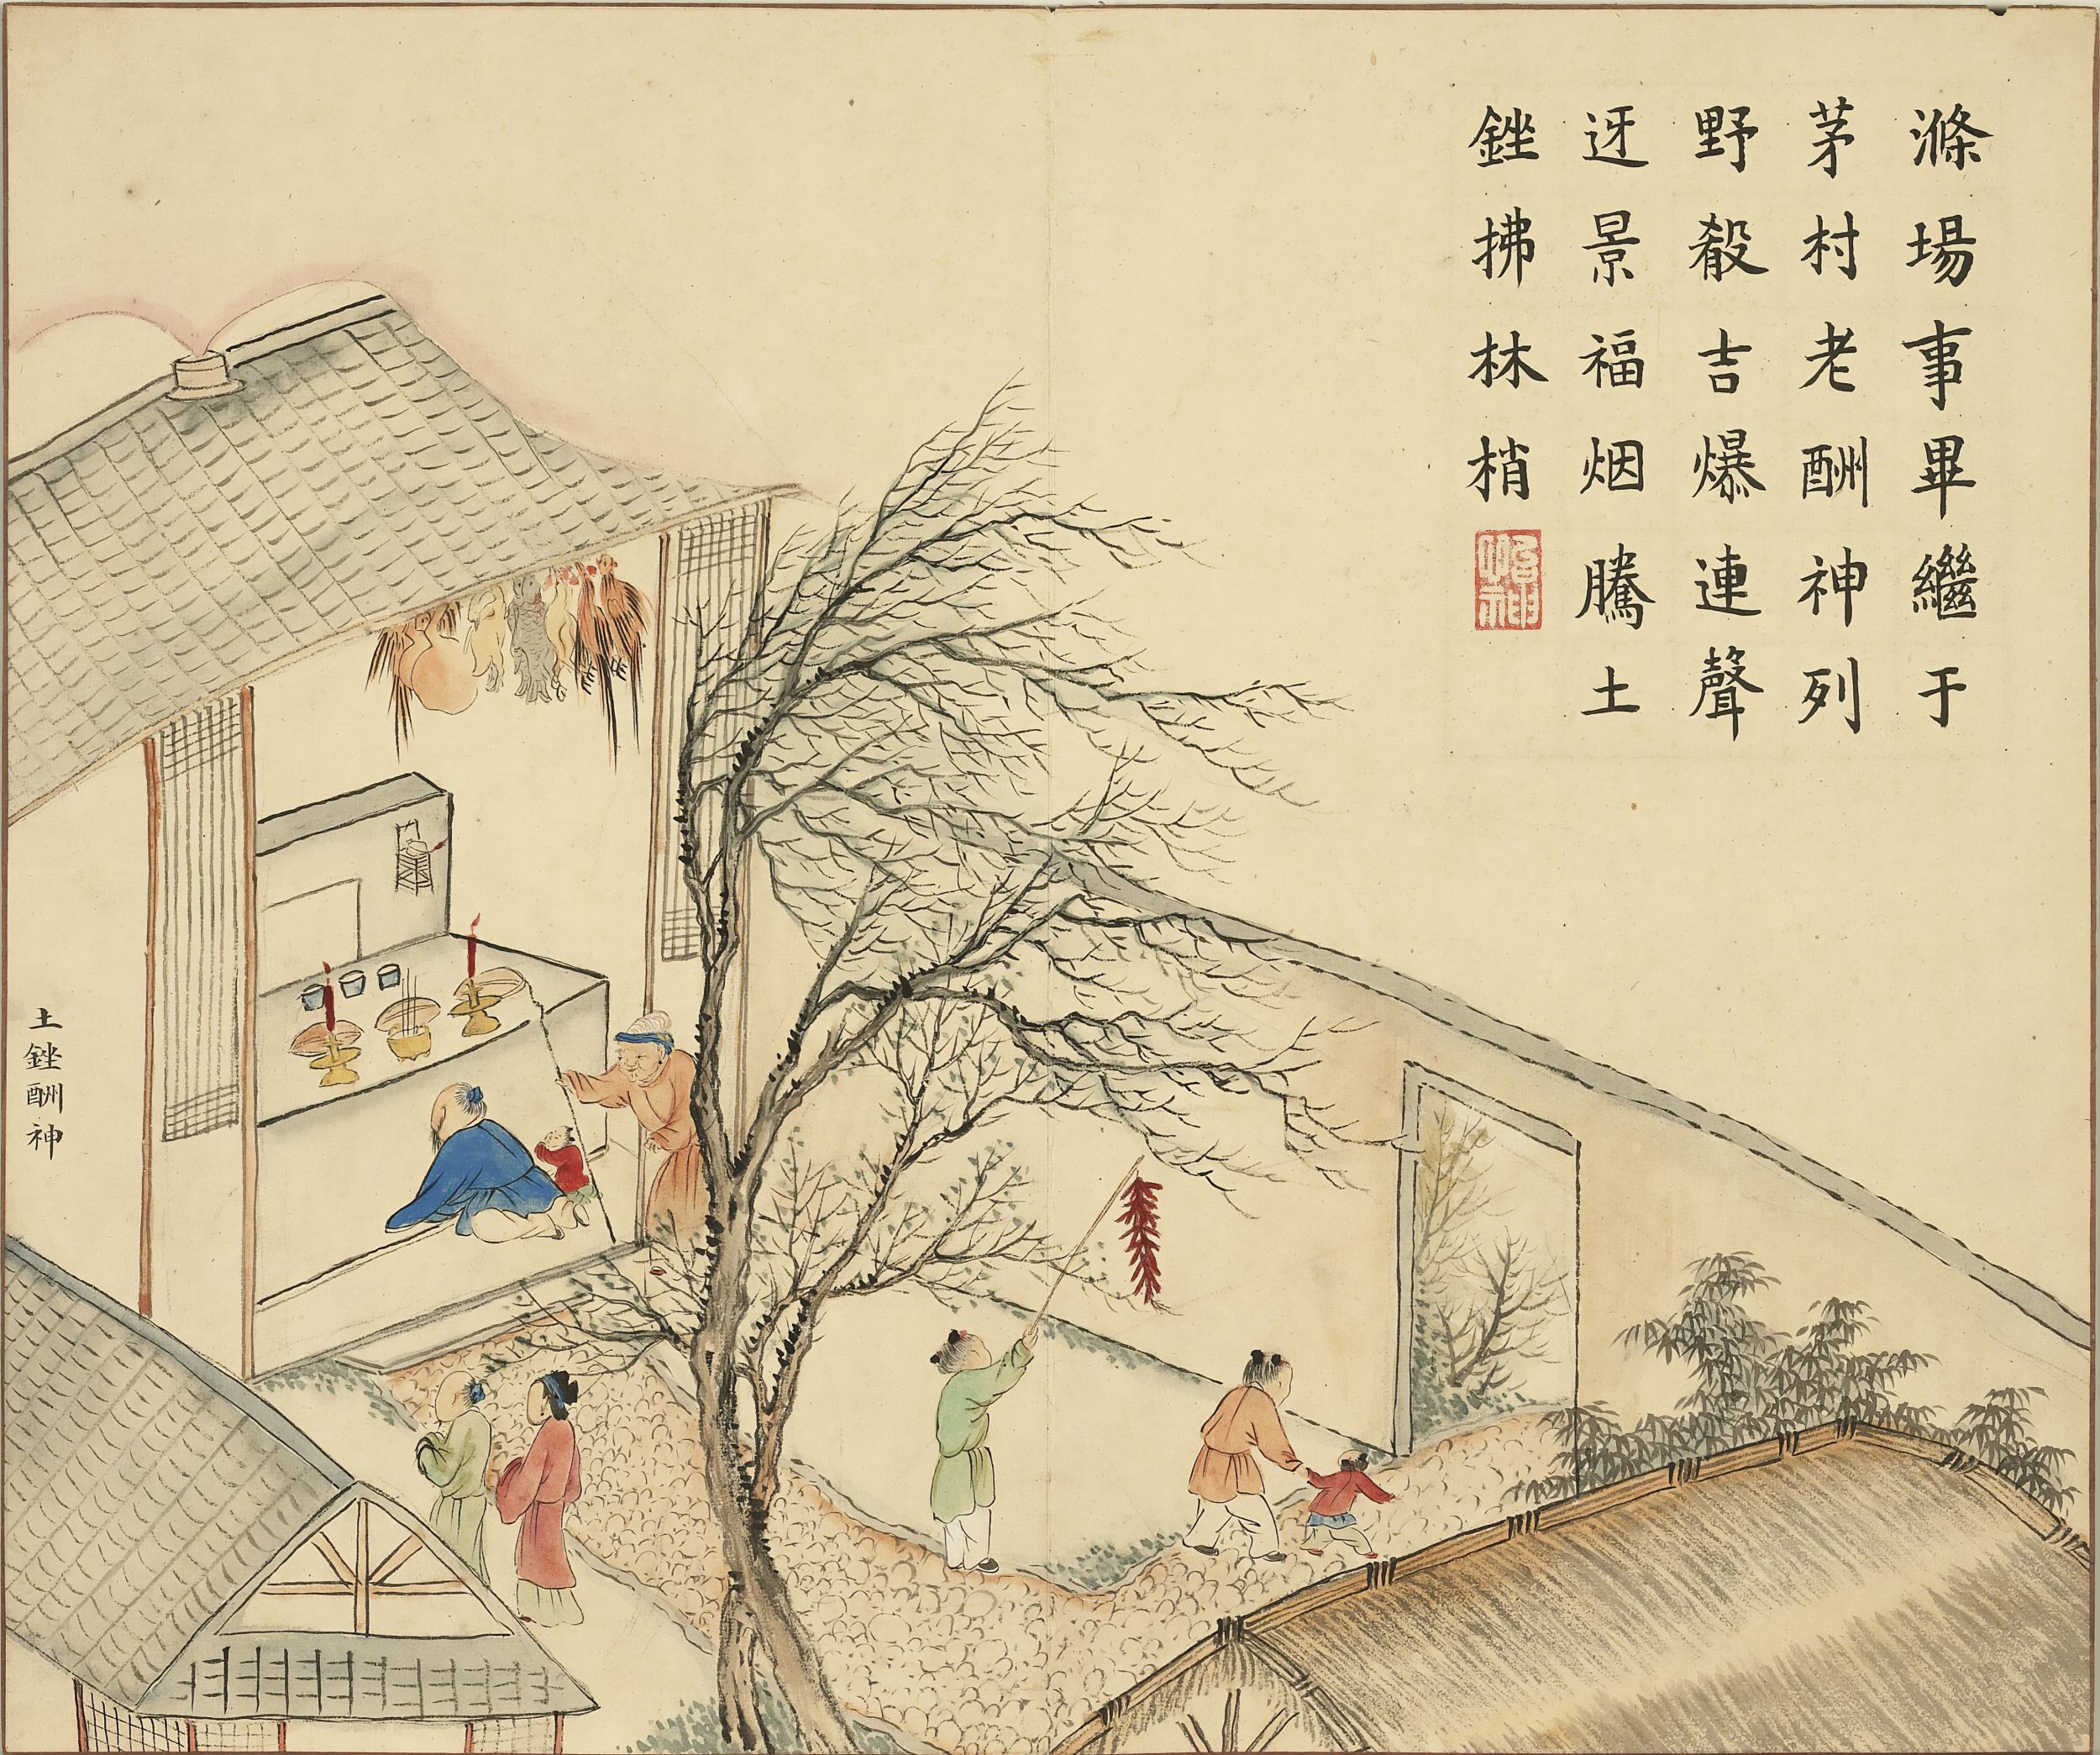 滌場事畢繼于
茅村老酬神列
野殽吉爆連聲
迓景福烟騰土
銼拂林梢
土銼酬神